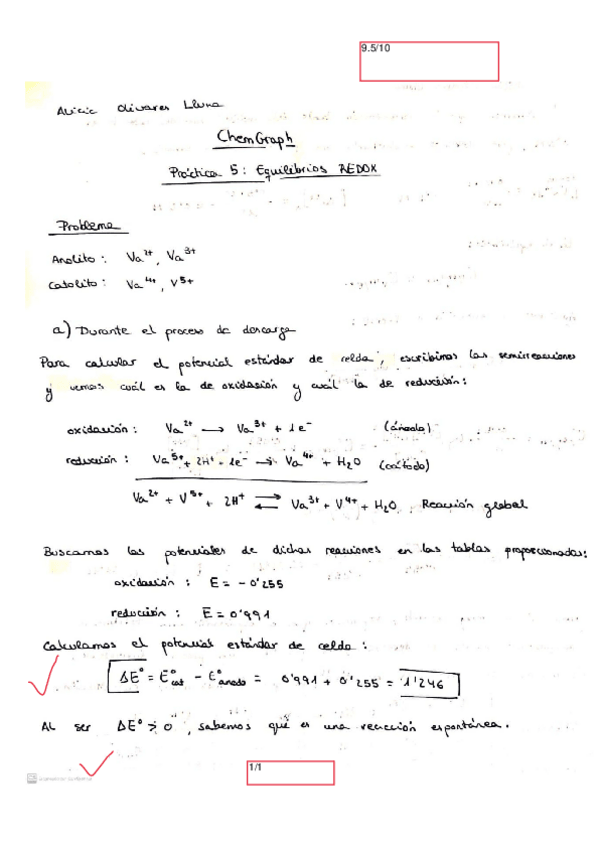 9.5/10
Alicia Olivares Lluna
ChemGraph
Práctica 5: Equilibrios REDOX
Problema
Anolito: Va²⁺, Va³⁺
Catolito: Va⁴⁺, V⁵⁺
a) Durante el proceso de descarga
Para calcular el potencial estándar de celda, escribimos las semirreaciones
y vemos cuál es la de oxidasión y cuál la de reducción:
oxidasión: Va²⁺ → Va³⁺ + 1e⁻ (ánodo)
reducción: Va⁵⁺ + 2H⁺ + 1e⁻ → Va⁴⁺ + H₂O (cátodo)
Va²⁺ + V⁵⁺ + 2H⁺ ⇄ Va³⁺ + V⁴⁺ + H₂O. Reacción global
Buscamos los potenciales de dichas reacciones en las tablas proporcionadas:
oxidasión: E = -0'255
reducción: E = 0'991
Calculamos el potencial estándar de celda:
ΔE° = E°cat - E°anodo = 0'991 + 0'255 = 1'246
Al ser ΔE° > 0, sabemos que es una reacción espontánea.
1/1